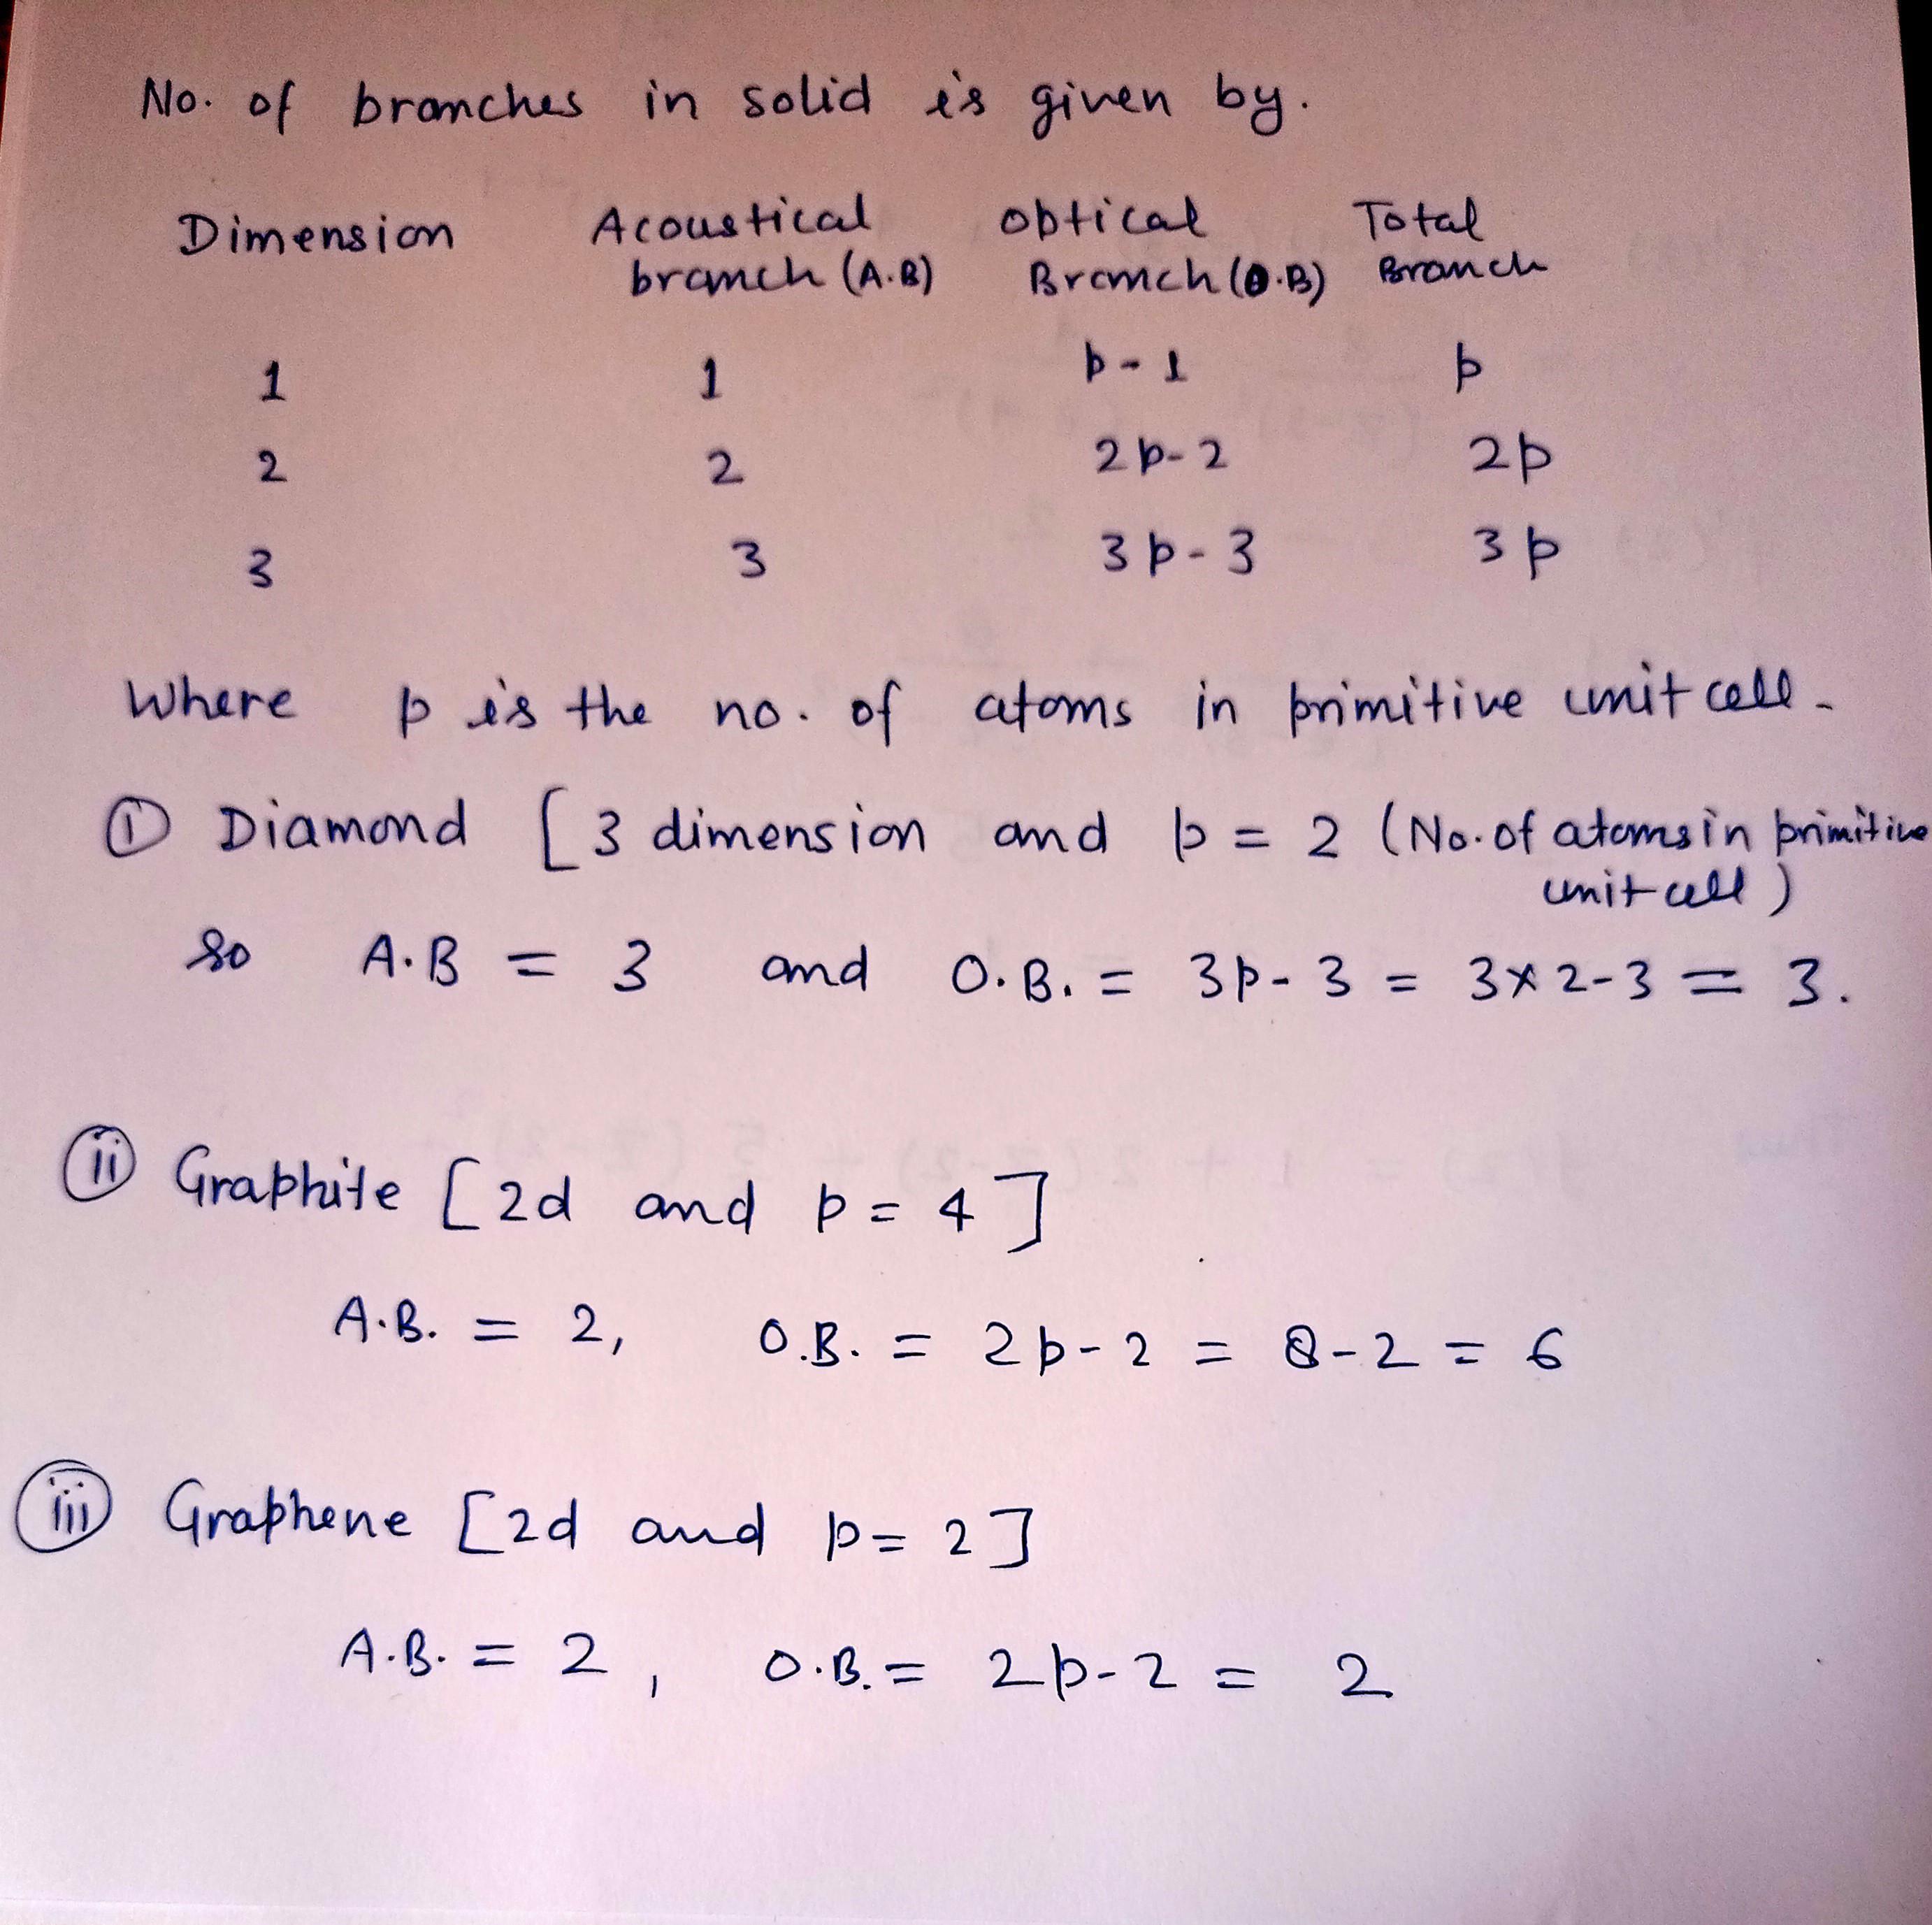 No. of branches in solid is given by.
Dimension Acoustical branch (A.B) Optical Branch (O.B) Total Branch
1 1 p-1 p
2 2 2p-2 2p
3 3 3p-3 3p
Where p is the no. of atoms in primitive unit cell.
(i) Diamond [3 dimension and p = 2 (No. of atoms in primitive
unit cell)
so A.B = 3 and O.B. = 3p-3 = 3×2-3 = 3.
(ii) Graphite [2d and p = 4]
A.B. = 2, O.B. = 2p-2 = 8-2 = 6
(iii) Graphene [2d and p = 2]
A.B. = 2, O.B. = 2p-2 = 2